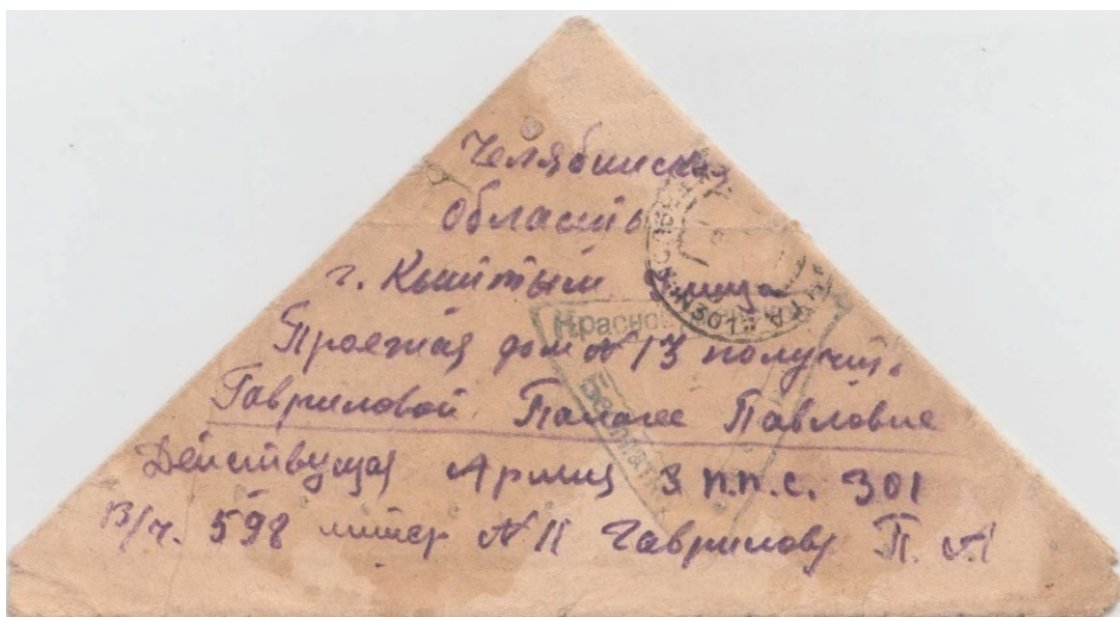 Челябинская
область
г. Кыштым улица
Проезжая дом № 13 получить
Гавриловой Палагее Павловне
Действующая Армия 3 п.п.с. 301
В/ч. 598 литер № 11 Гаврилову П. А
Красно
Бесплатно